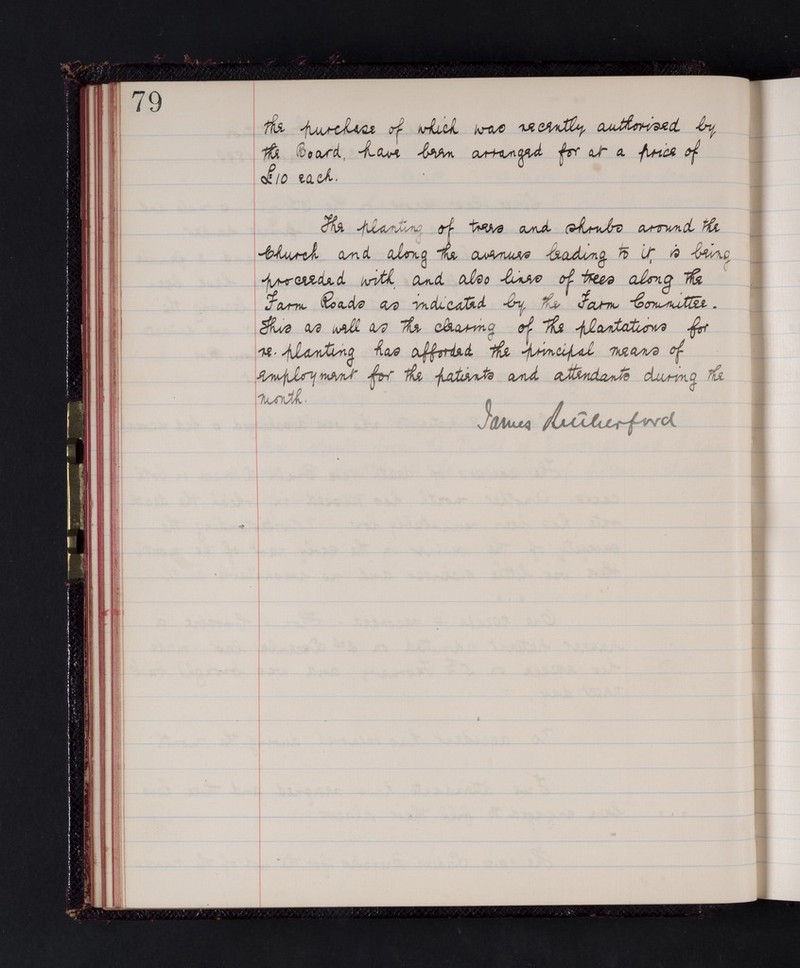 79
the purchase of which was recently authorised by
the Board, have been arranged for at a price of
£10 each.
The planting of trees and shrubs around the
Church and along the avenues leading to it, is being
proceeded with, and also lines of trees along the
Farm Roads as indicated by the Farm Committee.
This as well as the clearing of the plantations for
re-planting has afforded the principal means of
employment for the patients and attendants during the
month.
James Rutherford